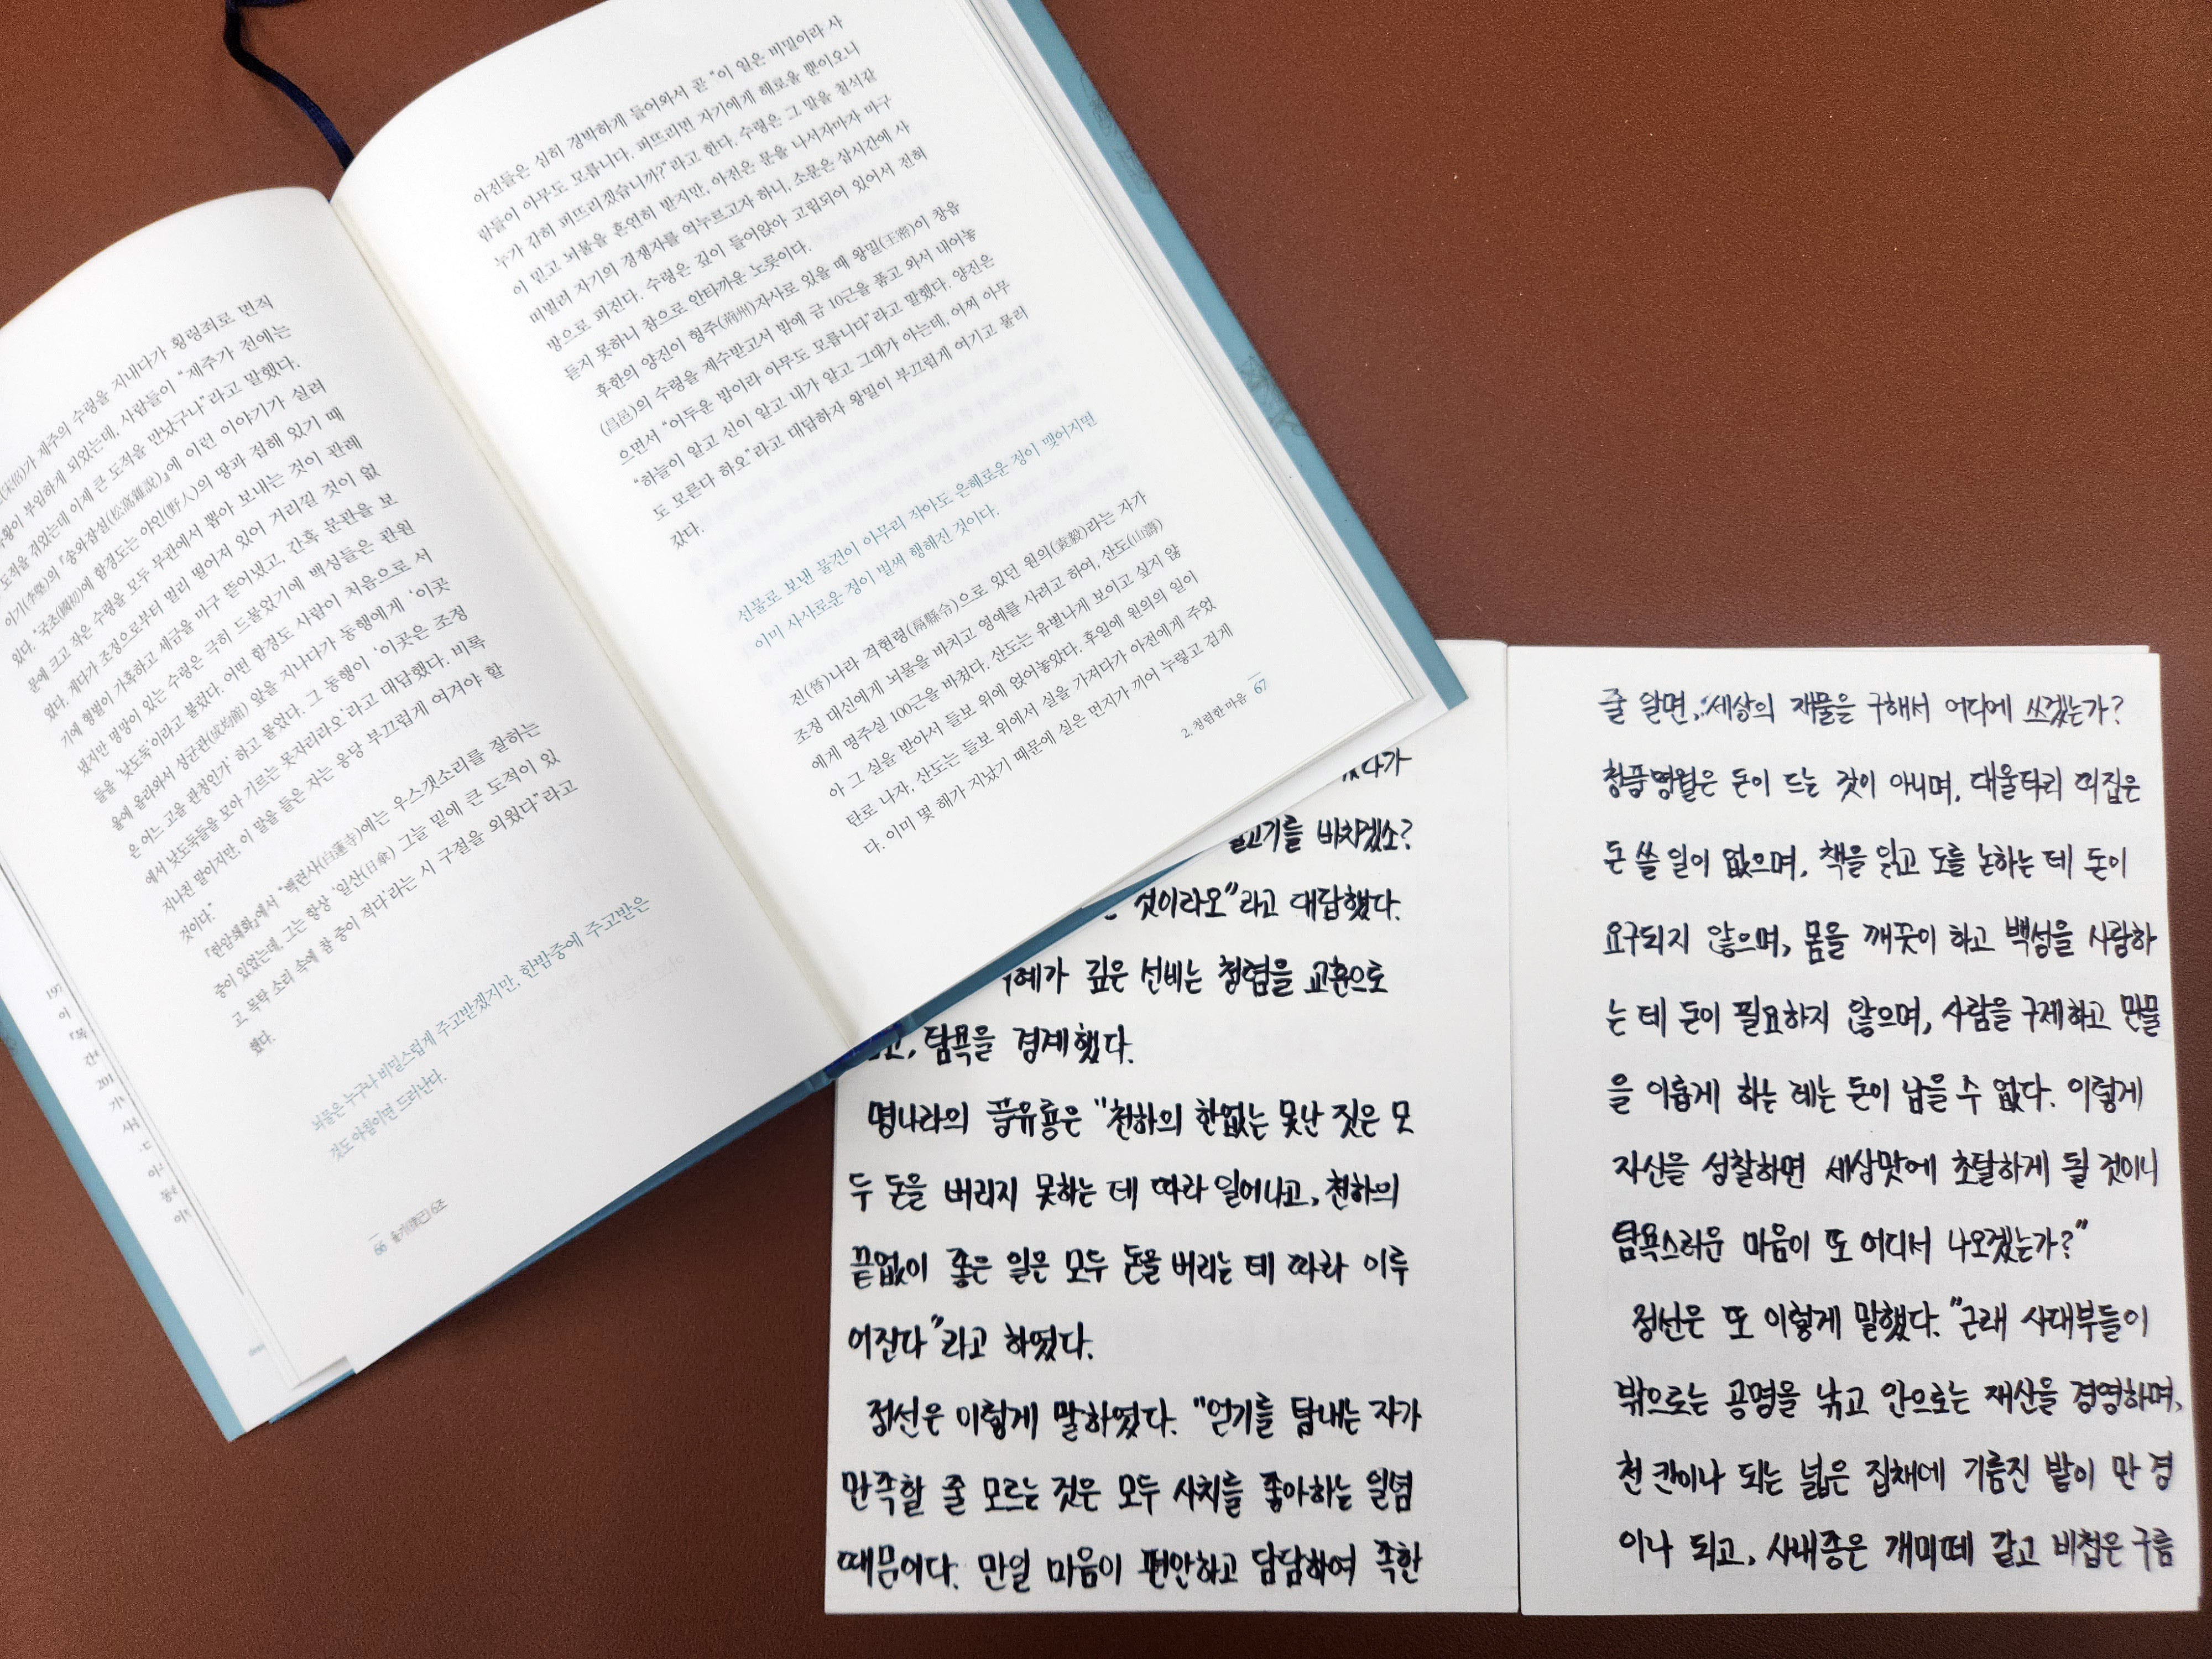 가 제주의 수령을 지내다가 횡령죄로 면직
황이 부임하게 되었는데, 사람들이 "제주가 전에는
도적을 겪었는데 이제 큰 도적을 만났구나"라고 말했다.
이기(李墍)의 『송와잡설(松窩雜說)』에 이런 이야기가 실려
있다. "국초(國初)에 함경도는 야인(野人)의 땅과 접해 있기 때
문에 크고 작은 수령을 모두 무관에서 뽑아 보내는 것이 관례
였다. 게다가 조정으로부터 멀리 떨어져 있어 거리낄 것이 없
기에 형벌이 가혹하고 세금을 마구 뜯어냈고, 간혹 문관을 보
냈지만 명망이 있는 수령은 극히 드물었기에 백성들은 관원
들을 '낮도둑'이라고 불렀다. 어떤 함경도 사람이 처음으로 서
울에 올라와서 성균관(成均館) 앞을 지나다가 동행에게 '이곳
은 어느 고을 관청인가' 하고 물었다. 그 동행이 '이곳은 조정
에서 낮도둑들을 모아 기르는 못자리라오'라고 대답했다. 비록
지나친 말이지만, 이 말을 들은 자는 응당 부끄럽게 여겨야 할
것이다."
『한암쇄화』에서 "백련사(白蓮寺)에는 우스갯소리를 잘하는
중이 있었는데, 그는 항상 '일산(日傘) 그늘 밑에 큰 도적이 있
고, 목탁 소리 속에 참 중이 적다'라는 시 구절을 외웠다"라고
했다.
뇌물은 누구나 비밀스럽게 주고받겠지만, 한밤중에 주고받은
것도 아침이면 드러난다.
66 율기(律己) 6조
아전들은 심히 경박하게 들어와서 곧 "이 일은 비밀이라 사
람들이 아무도 모릅니다. 퍼뜨리면 자기에게 해로울 뿐이오니
누가 감히 퍼뜨리겠습니까?"라고 한다. 수령은 그 말을 철석같
이 믿고 뇌물을 흔연히 받지만, 아전은 문을 나서자마자 마구
떠벌려 자기의 경쟁자를 억누르고자 하니, 소문은 삽시간에 사
방으로 퍼진다. 수령은 깊이 들어앉아 고립되어 있어서 전혀
듣지 못하니 참으로 안타까운 노릇이다.
후한의 양진이 형주(荊州)자사로 있을 때 왕밀(王密)이 창읍
(昌邑)의 수령을 제수받고서 밤에 금 10근을 품고 와서 내어놓
으면서 "어두운 밤이라 아무도 모릅니다"라고 말했다. 양진은
"하늘이 알고 신이 알고 내가 알고 그대가 아는데, 어찌 아무
도 모른다 하오"라고 대답하자 왕밀이 부끄럽게 여기고 물러
갔다.
선물로 보낸 물건이 아무리 작아도 은혜로운 정이 맺어지면
이미 사사로운 정이 벌써 행해진 것이다.
진(晉)나라 격현령(鬲縣令)으로 있던 원의(袁毅)라는 자가
조정 대신에게 뇌물을 바치고 영예를 사려고 하여, 산도(山濤)
에게 명주실 100근을 바쳤다. 산도는 유별나게 보이고 싶지 않
아 그 실을 받아서 들보 위에 얹어놓았다. 후일에 원의의 일이
탄로 나자, 산도는 들보 위에서 실을 가져다가 아전에게 주었
다. 이미 몇 해가 지났기 때문에 실은 먼지가 끼어 누렇고 검게
2. 청렴한 마음 67
고기를 바치겠소?
것이라오"라고 대답했다.
깊은 선비는 청렴을 교훈으로
탐욕을 경계했다.
명나라의 풍유룡은 "천하의 한없는 못난 짓은 모
두 돈을 버리지 못하는 데 따라 일어나고, 천하의
끝없이 좋은 일은 모두 돈을 버리는 데 따라 이루
어진다"라고 하였다.
정선은 이렇게 말하였다. "얻기를 탐내는 자가
만족할 줄 모르는 것은 모두 사치를 좋아하는 일념
때문이다. 만일 마음이 편안하고 담담하여 족한
줄 알면, 세상의 재물을 구해서 어디에 쓰겠는가?
청풍명월은 돈이 드는 것이 아니며, 대울타리 띠집은
돈 쓸 일이 없으며, 책을 읽고 도를 논하는 데 돈이
요구되지 않으며, 몸을 깨끗이 하고 백성을 사랑하
는 데 돈이 필요하지 않으며, 사람을 구제하고 만물
을 이롭게 하는 데는 돈이 남을 수 없다. 이렇게
자신을 성찰하면 세상맛에 초탈하게 될 것이니
탐욕스러운 마음이 또 어디서 나오겠는가?"
정선은 또 이렇게 말했다. "근래 사대부들이
밖으로는 공명을 낚고 안으로는 재산을 경영하며,
천 칸이나 되는 넓은 집채에 기름진 밭이 만 경
이나 되고, 사내종은 개미떼 같고 비첩은 구름